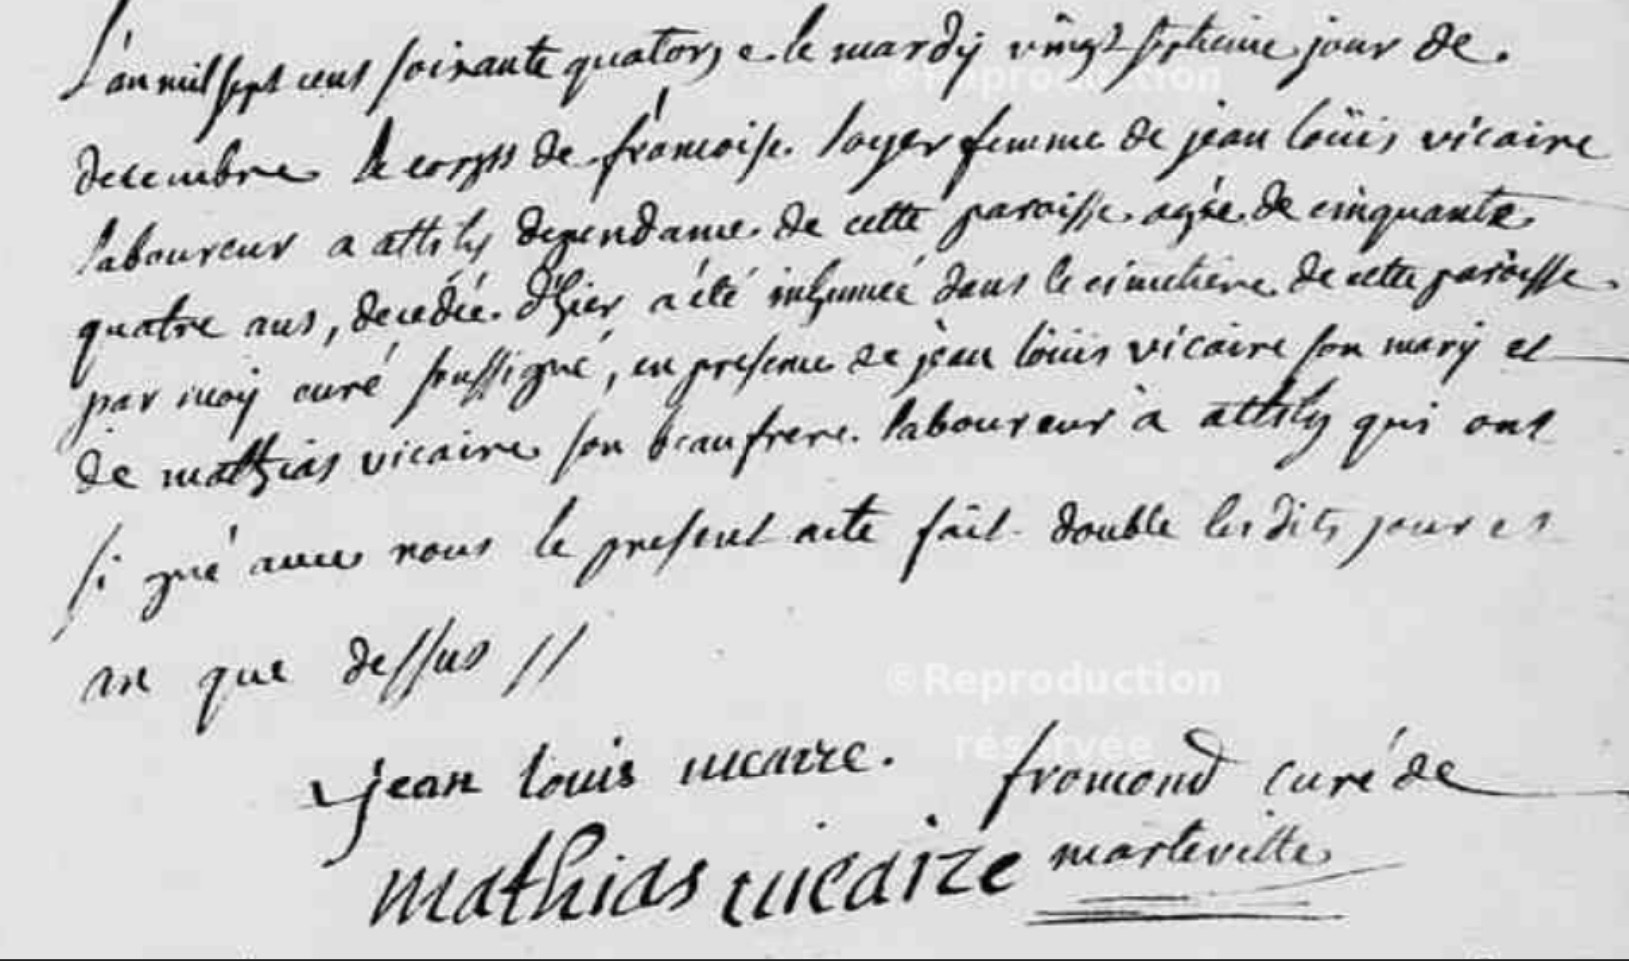 L'an mil sept cens soixante quatorze le mardy vingt septieme jour de
decembre le corps de francoise loyer femme de jean loüis vicaire
laboureur a attily dependance de cette paroisse agée de cinquante
quatre ans, decedée d'hier a été inhumée dans le cimetiere de cette paroisse
par moy curé soussigné, en presence de jean loüis vicaire son mary et
de mathias vicaire son beaufrere laboureur à attily qui ont
signé avec nous le present acte fait double lesdits jour et
an que dessus //
jean louis vicaire. fromond curé de
mathias vicaire marteville
©Reproduction
©Reproduction
réservée